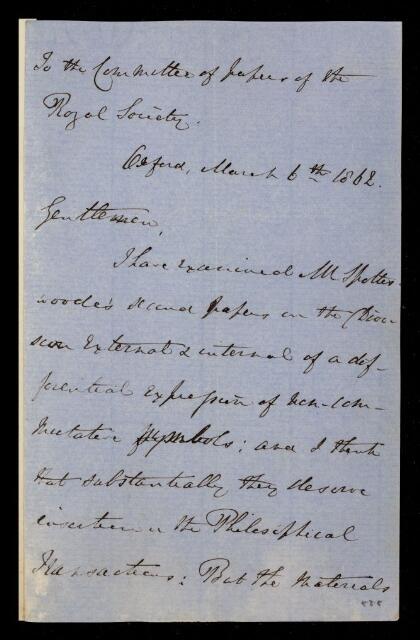 To the Committee of papers of the
Royal Society.
Oxford, March 6th 1862.
Gentlemen,
I have examined Mr Spottis-
woode's second papers on the Divi-
sion External & internal of a dif-
ferential expression of non-com-
mutative symbols; and I think
that substantially they deserve
insertion in the Philosophical
Transactions: But the materials